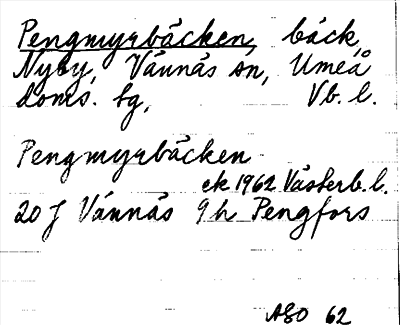 Pengmyrbäcken, bäck,
Nyby, Vännäs sn, Umeå
doms. fg,  Vb. l.
Pengmyrbäcken
ek 1962 Västerb. l.
20 J Vännäs 9 h Pengfors
ASO 62